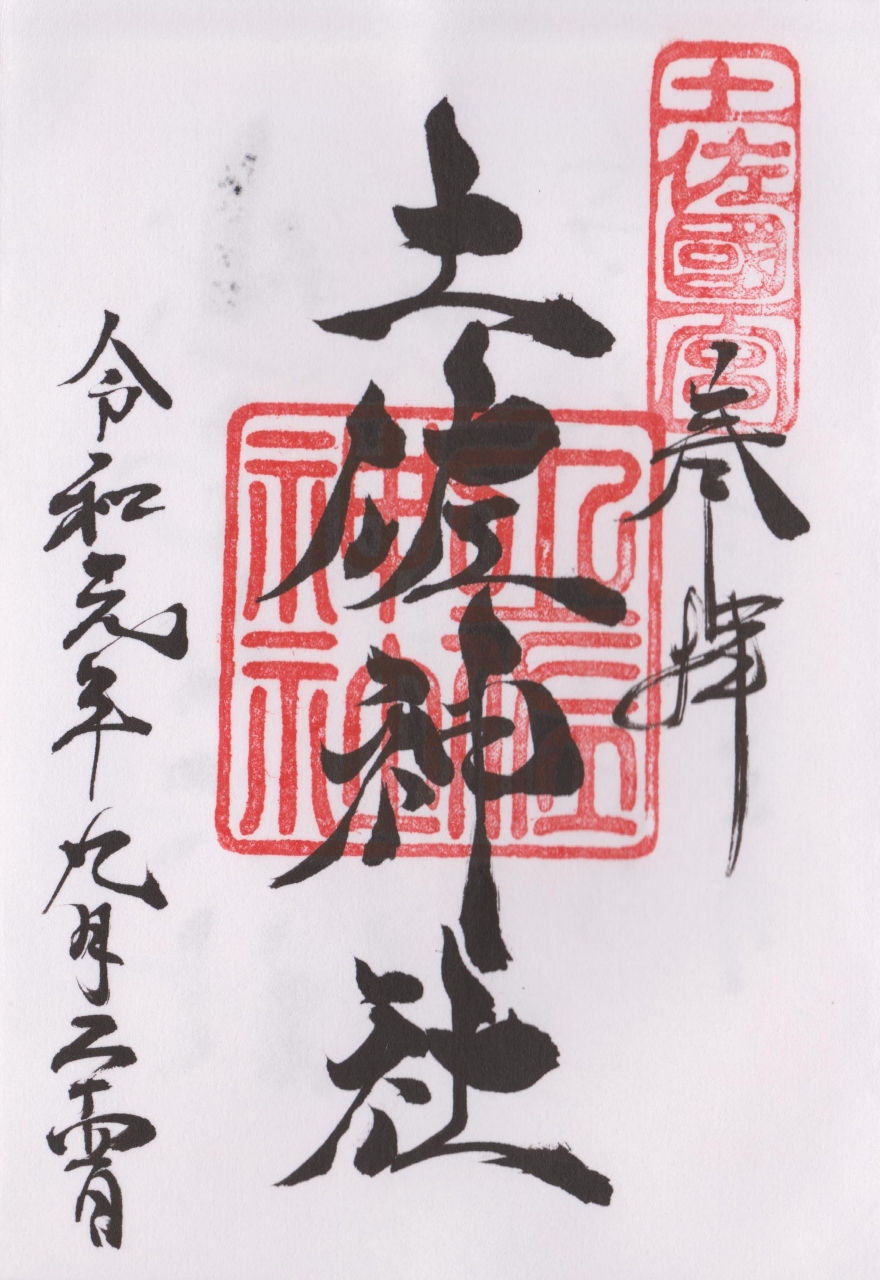 土佐國一宮
参拝
土佐神社
土佐神社
令和元年九月二十四日